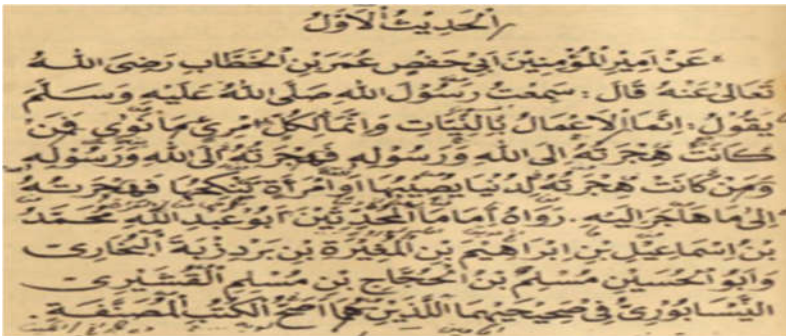 اَلْحَدِيْثُ الْاَوَّلُ
عَنْ اَمِيْرِ الْمُؤْمِنِيْنَ اَبِيْ حَفْصٍ عُمَرَ بْنِ الْخَطَّابِ رَضِيَ اللهُ
تَعَالٰى عَنْهُ قَالَ : سَمِعْتُ رَسُوْلَ اللهِ صَلَّى اللهُ عَلَيْهِ وَسَلَّمَ
يَقُوْلُ : اِنَّمَا الْاَعْمَالُ بِالنِّيَّاتِ وَاِنَّمَا لِكُلِّ امْرِئٍ مَا نَوٰى فَمَنْ
كَانَتْ هِجْرَتُهُ اِلَى اللهِ وَرَسُوْلِهِ فَهِجْرَتُهُ اِلَى اللهِ وَرَسُوْلِهِ
وَمَنْ كَانَتْ هِجْرَتُهُ لِدُنْيَا يُصِيْبُهَا اَوِ امْرَأَةٍ يَنْكِحُهَا فَهِجْرَتُهُ
اِلٰى مَا هَاجَرَ اِلَيْهِ . رَوَاهُ اِمَامَا الْمُحَدِّثِيْنَ اَبُوْ عَبْدِ اللهِ مُحَمَّدُ
بْنُ اِسْمَاعِيْلَ بْنِ اِبْرَاهِيْمَ بْنِ الْمُغِيْرَةِ بْنِ بَرْدِزْبَةَ الْبُخَارِيُّ
وَاَبُو الْحُسَيْنِ مُسْلِمُ بْنُ الْحَجَّاجِ بْنِ مُسْلِمٍ الْقُشَيْرِيُّ
النَّيْسَابُوْرِيُّ فِيْ صَحِيْحَيْهِمَا اللَّذَيْنِ هُمَا اَصَحُّ الْكُتُبِ الْمُصَنَّفَةِ .